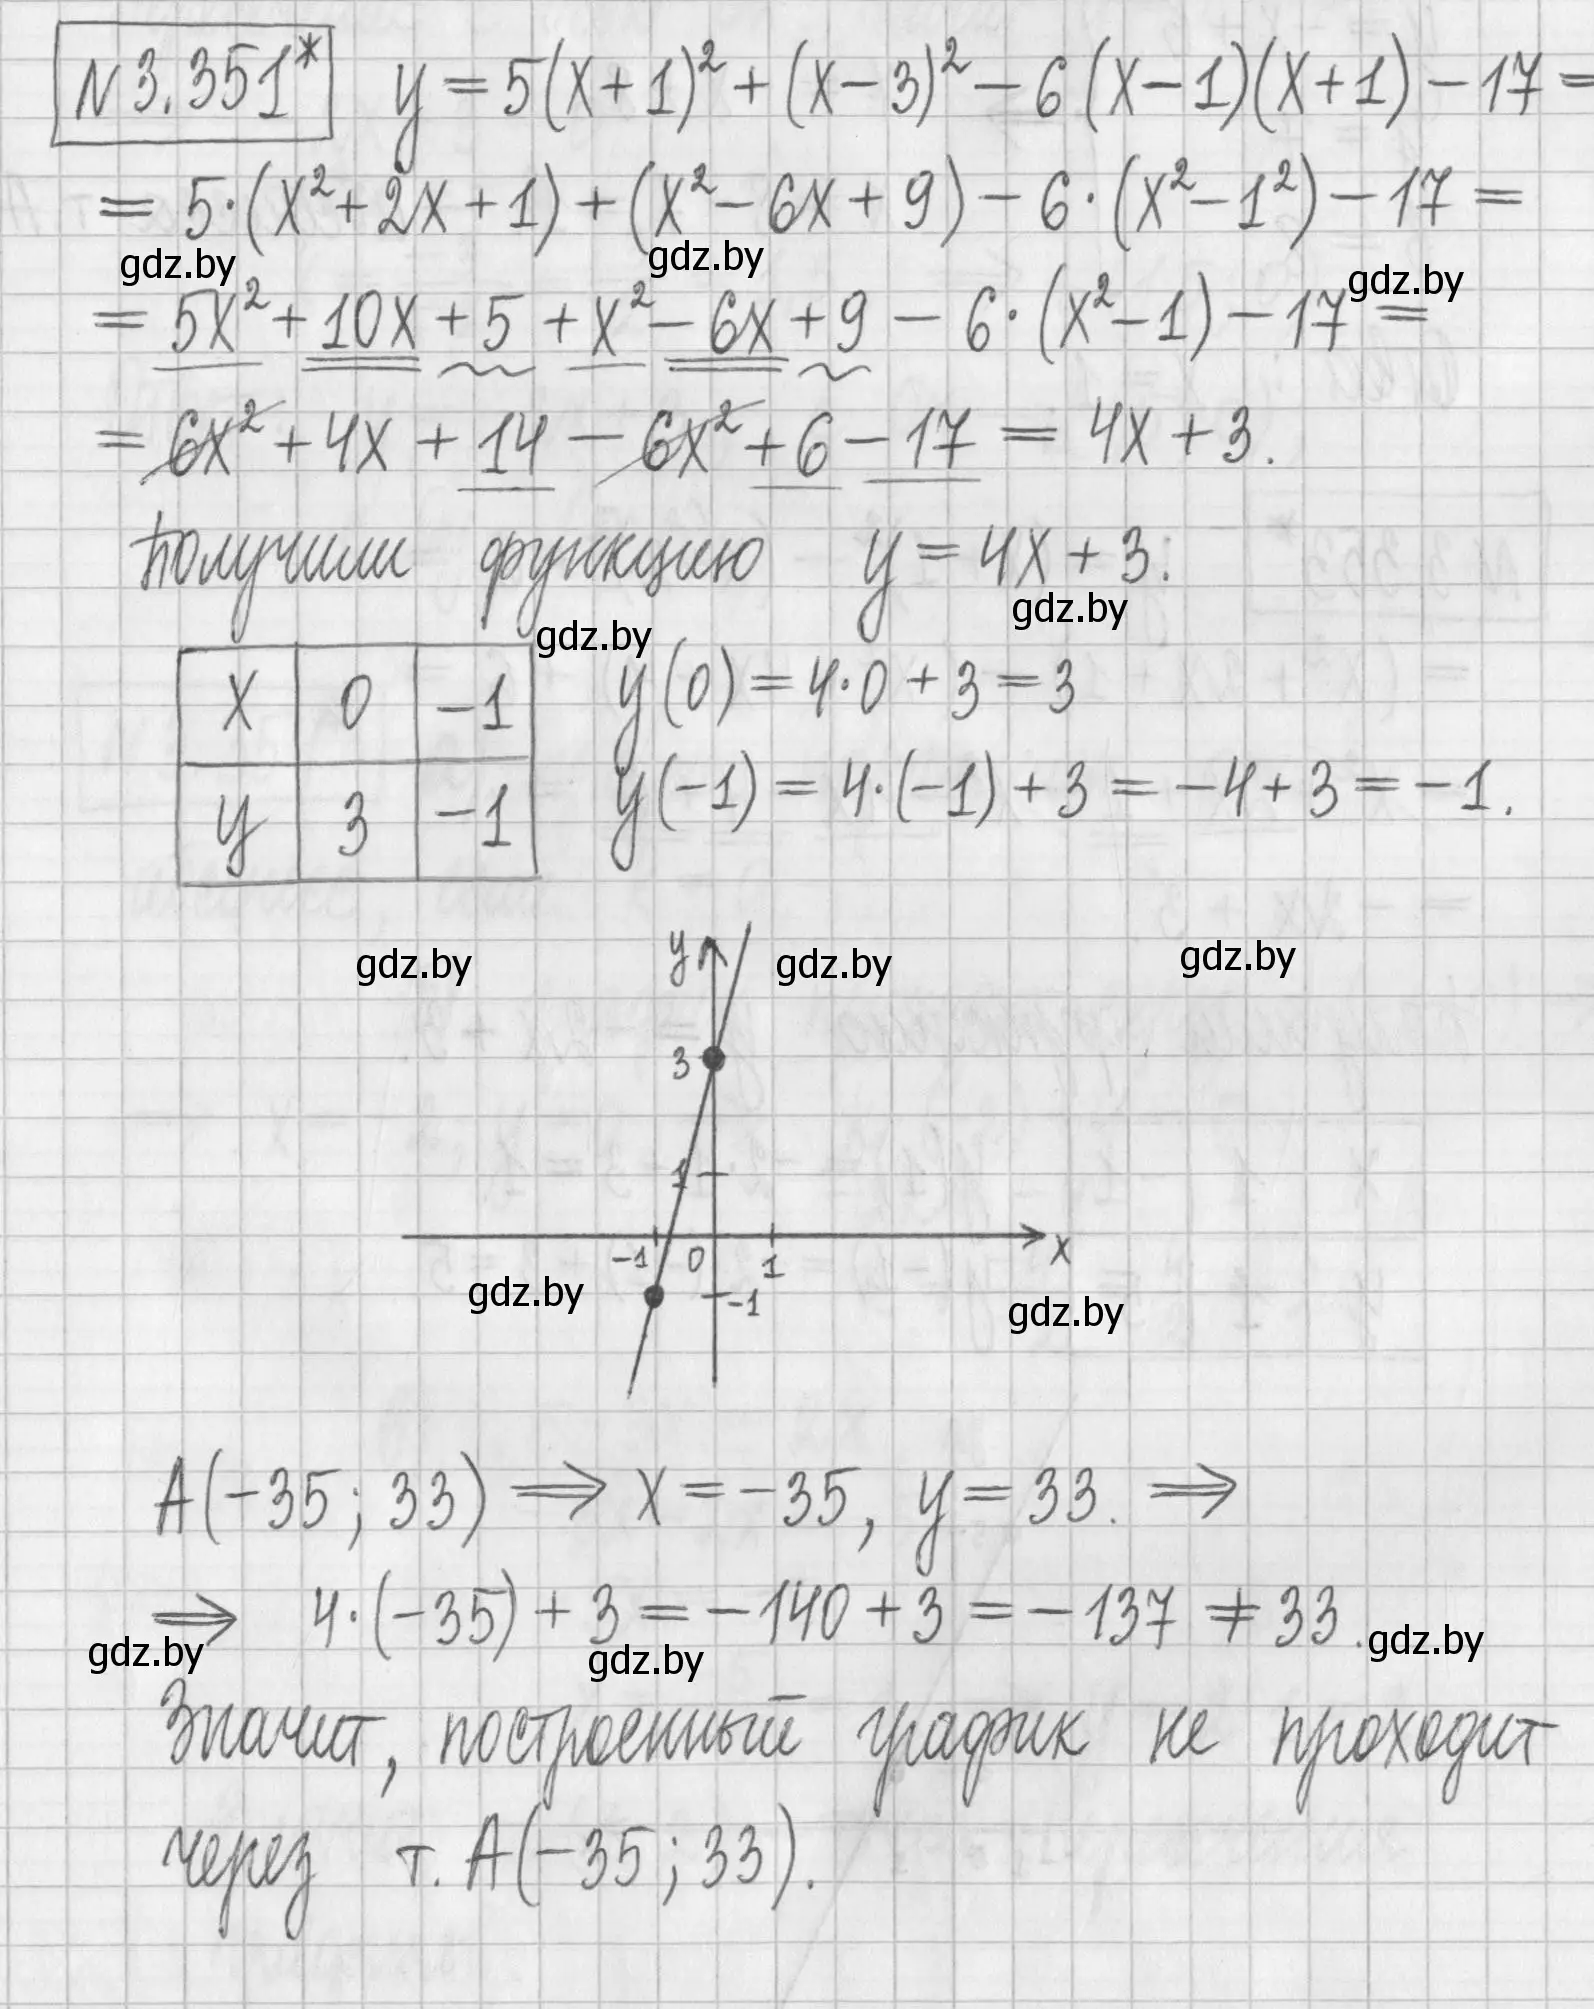 N 3.351* y = 5(x+1)² + (x-3)² - 6(x-1)(x+1) - 17 =
= 5·(x²+2x+1) + (x²-6x+9) - 6·(x²-1²) - 17 =
gdz.by gdz.by gdz.by
= 5x² + 10x + 5 + x² - 6x + 9 - 6·(x²-1) - 17 =
= 6x² + 4x + 14 - 6x² + 6 - 17 = 4x + 3.
Получили функцию y = 4x + 3:
gdz.by gdz.by
x 0 -1 y(0) = 4·0 + 3 = 3
y 3 -1 y(-1) = 4·(-1) + 3 = -4 + 3 = -1.
gdz.by y gdz.by gdz.by
3
1
-1 0 1 x
gdz.by -1 gdz.by
A(-35; 33) ⇒ x = -35, y = 33. ⇒
⇒ 4·(-35) + 3 = -140 + 3 = -137 ≠ 33.
gdz.by gdz.by gdz.by
Значит, построенный график не проходит
через т. A(-35; 33).